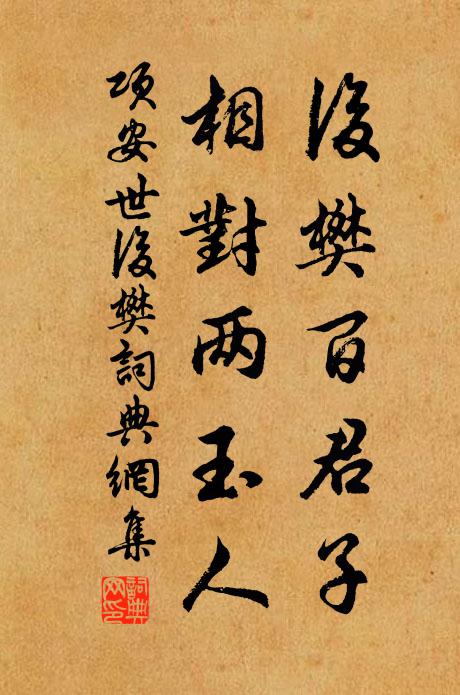 後樊百君子
相對两玉人
項安世後樊詞典網集
詞典网印